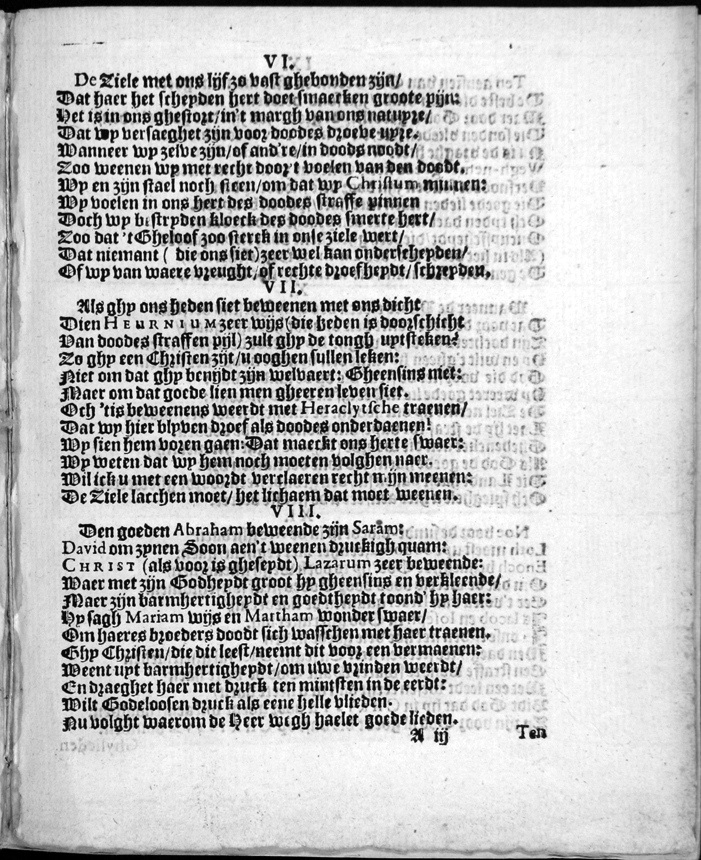 VI.
De Ziele met ons lijf zo vast ghebonden zijn/
Dat haer het scheyden hert doet smaecken groote pijn:
Het is in ons ghestort/in't margh van ons natuyre/
Dat wy versaeghet zijn voor doodes droeve uyre.
Wanneer wy zelve zijn/of and're/in doods noodt/
Zoo weenen wy met recht door't voelen van den doodt.
Wy en zijn stael noch steen/om dat wy Christum minnen:
Wy voelen in ons hert des doodes straffe pinnen
Doch wy bestryden kloeck des doodes smerte hert/
Zoo dat 't Gheloof zoo sterck in onse ziele wert/
Dat niemant ( die ons siet) zeer wel kan onderscheyden/
Of wy van waere vreught/of rechte droefheydt/schreyden.
VII.
Als ghy ons heden siet beweenen met ons dicht
Dien HEURNIUM zeer wijs (die heden is doorschicht
Van doodes straffen pijl) zult ghy de tongh uytsteken?
Zo ghy een Christen zijt/u ooghen sullen leken:
Niet om dat ghy benijdt zijn welvaert: Gheensins niet:
Maer om dat goede lien men gheeren leven siet.
Och 'tis beweenens weerdt met Heraclytsche traenen/
Dat wy hier blyven droef als doodes onderdaenen!
Wy sien hem voren gaen: Dat maeckt ons herte swaer:
Wy weten dat wy hem noch moeten volghen naer.
Wil ick u met een woordt verclaeren recht mijn meenen:
De Ziele lacchen moet/het lichaem dat moet weenen.
VIII.
Den goeden Abraham beweende zijn Saram:
David om zynen Soon aen't weenen druckigh quam:
CHRIST (als voor is gheseydt) Lazarum zeer beweende:
Waer met zijn Godheydt groot hy gheensins en verkleende/
Maer zijn barmhertigheydt en goedtheydt toond' hy haer:
Hy sagh Mariam wijs en Martham wonder swaer/
Om haeres broeders doodt sich wasschen met haer traenen.
Ghy Christen/die dit leest/neemt dit voor een vermaenen:
Weent uyt barmhertigheydt/om uwe vrinden weerdt/
En draeghet haer met druck ten minsten in de eerdt:
Wilt Godeloosen druck als eene helle vlieden.
Nu volght waerom de Heer wegh haelet goede lieden.
A iij Ten